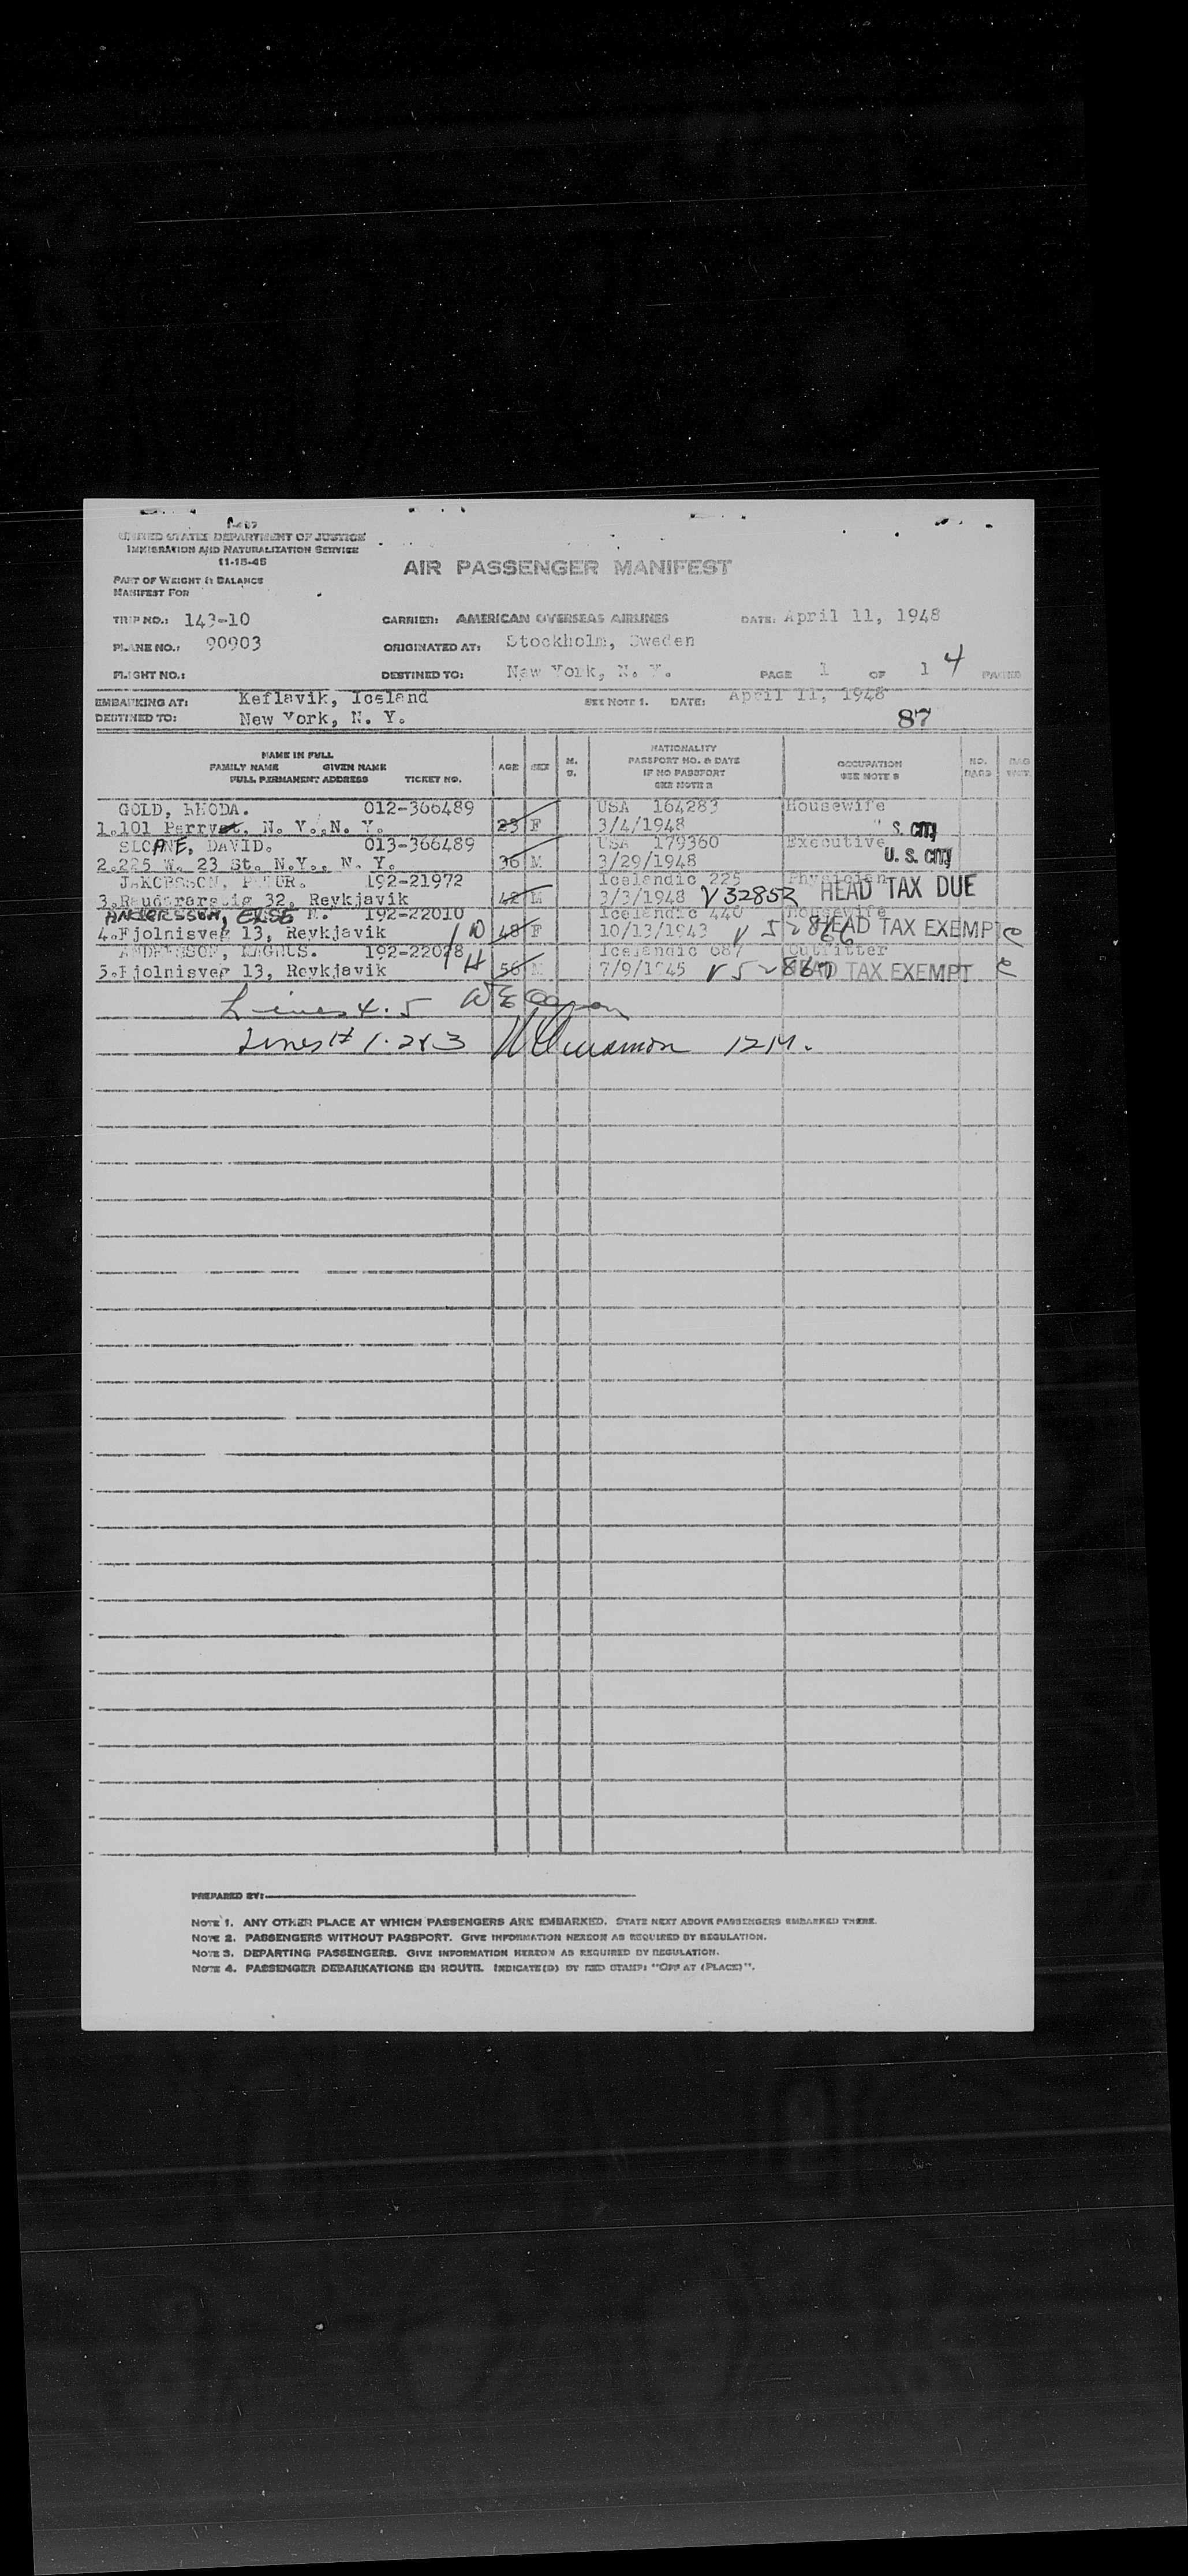 I-427
UNITED STATES DEPARTMENT OF JUSTICE
IMMIGRATION AND NATURALIZATION SERVICE
11-15-45
AIR PASSENGER MANIFEST
PART OF WEIGHT & BALANCE
MANIFEST FOR
TRIP NO.: 143-10 CARRIER: AMERICAN OVERSEAS AIRLINES DATE: April 11, 1948
PLANE NO.: 90903 ORIGINATED AT: Stockholm, Sweden
FLIGHT NO.: DESTINED TO: New York, N. Y. PAGE 1 OF 1 4 PAGES
EMBARKING AT: Keflavik, Iceland SEE NOTE 1. DATE: April 11, 1948
DESTINED TO: New York, N. Y. 87
NAME IN FULL
FAMILY NAME GIVEN NAME
FULL PERMANENT ADDRESS TICKET NO.
AGE SEX M. S.
NATIONALITY
PASSPORT NO. & DATE
IF NO PASSPORT
SEE NOTE 2
OCCUPATION
SEE NOTE 3
NO. BAGS BAG WGT.
GOLD, RHODA. 012-366489 USA 164283 Housewife
1. 101 Perry st, N. Y., N. Y. 23 F 3/4/1948 U. S. CITY
SLOANE, DAVID. 013-366489 USA 179360 Executive
2. 225 W. 23 St. N.Y., N. Y. 36 M 3/29/1948 U. S. CITY
JAKOBSSON, PETUR. 192-21972 Icelandic 225 Physician
3. Reykjavik 42 M 3/3/1948 V 32852 HEAD TAX DUE
ANDERSSON, ELSE M. 192-22010 Icelandic 440 Housewife
4. Fjolnisveg 13, Reykjavik 48 F 10/13/1943 V 52866 HEAD TAX EXEMPT
ANDERSSON, MAGNUS. 192-22028 Icelandic 687 Outfitter
5. Fjolnisveg 13, Reykjavik 56 M 7/9/1945 V 52867 HEAD TAX EXEMPT
Lines 4. 5
Lines # 1. 2 & 3
PREPARED BY:
NOTE 1. ANY OTHER PLACE AT WHICH PASSENGERS ARE EMBARKED. STATE NEXT ABOVE PASSENGERS EMBARKED THERE.
NOTE 2. PASSENGERS WITHOUT PASSPORT. GIVE INFORMATION HEREON AS REQUIRED BY REGULATION.
NOTE 3. DEPARTING PASSENGERS. GIVE INFORMATION HEREON AS REQUIRED BY REGULATION.
NOTE 4. PASSENGER DEBARKATIONS EN ROUTE. INDICATE(D) BY RED STAMP: "OFF AT (PLACE)".